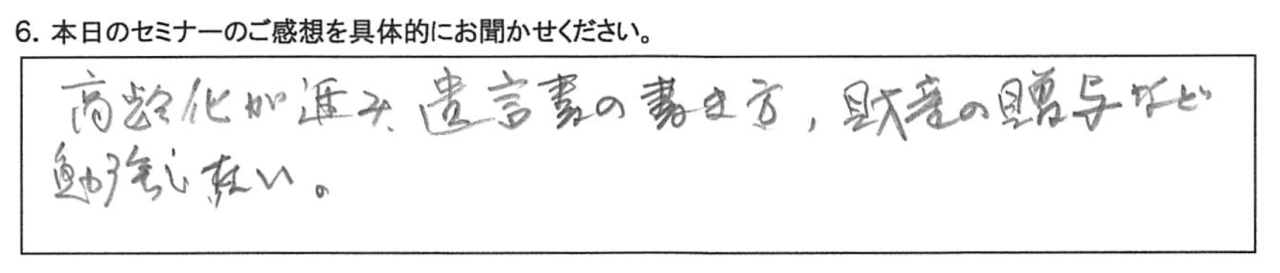 6. 本日のセミナーのご感想を具体的にお聞かせください。
高齢化が進み、遺言書の書き方，財産の贈与など
勉強したい。